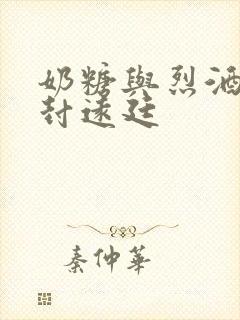 奶糖與烈酒
封遠廷
秦仲華